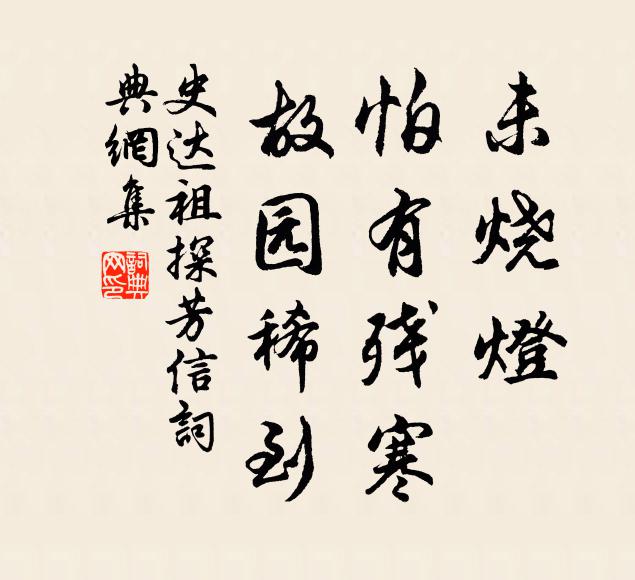 未烧燈
怕有残寒
故园稀到
史达祖探芳信詞
典網集
詞典
网印